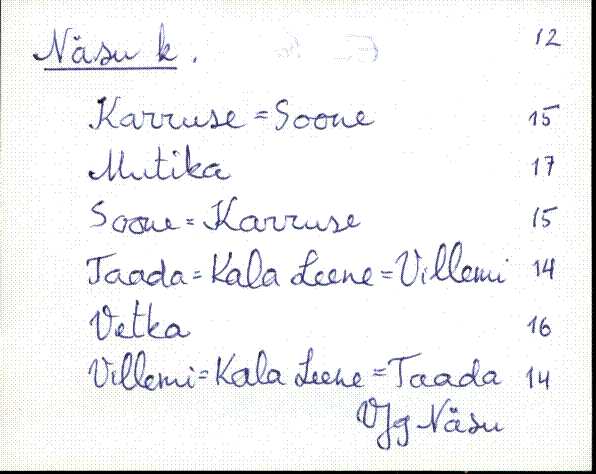 Näsu k. 12
Karruse = Soone 15
Mutika 17
Soone = Karruse 15
Taada = Kala Leene = Villemi 14
Vetka 16
Villemi = Kala Leene = Taada 14
Vjg Näsu